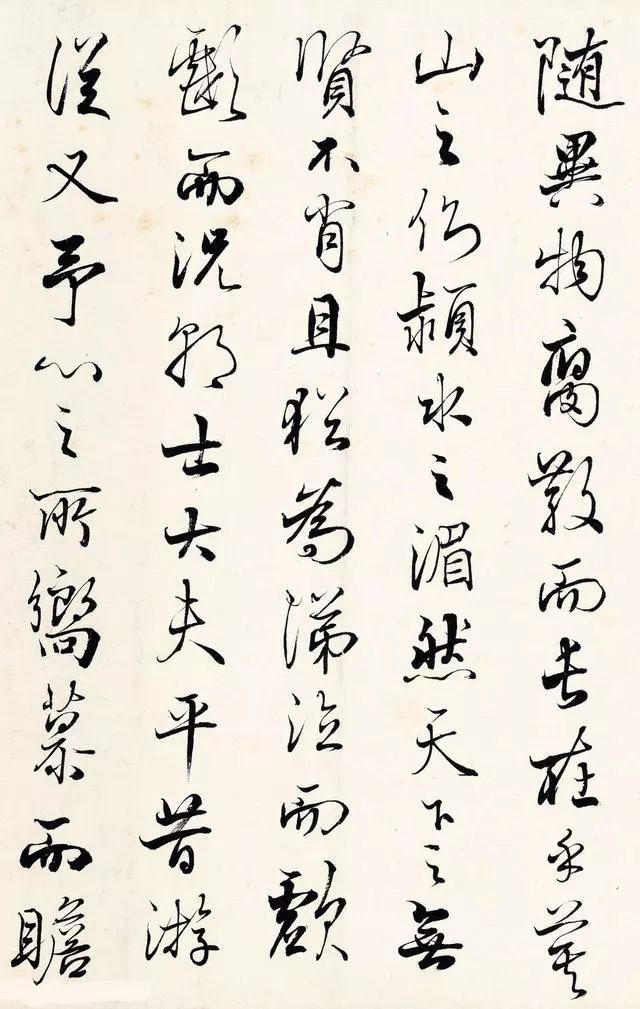 随異物腐散而長在乎箕
山之側潁水之湄然天下之無
賢不肖且猶為涕泣而歔
欷而況朝士大夫平昔游
從又予心之所嚮慕而瞻